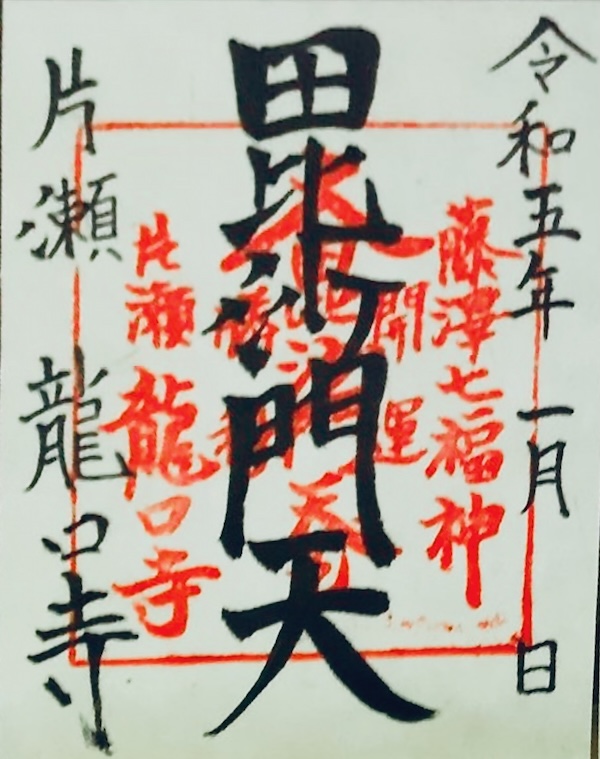 令和五年 一月 日
藤澤七福神
開運
毘沙門天
片瀬 龍口寺
片瀬 龍口寺